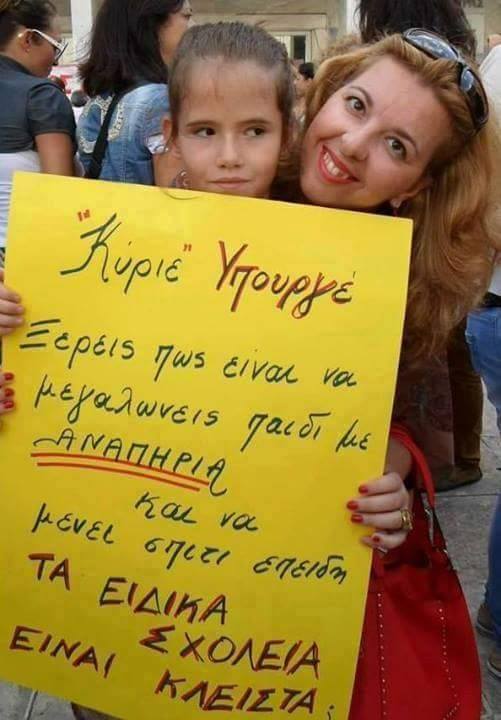 "Κύριε" Υπουργέ
Ξερεις πως είναι να
μεγαλωνεις παιδι με
ΑΝΑΠΗΡΙΑ
και να
μενει σπιτι επειδη
ΤΑ ΕΙΔΙΚΑ
ΣΧΟΛΕΙΑ
ΕΙΝΑΙ ΚΛΕΙΣΤΑ;